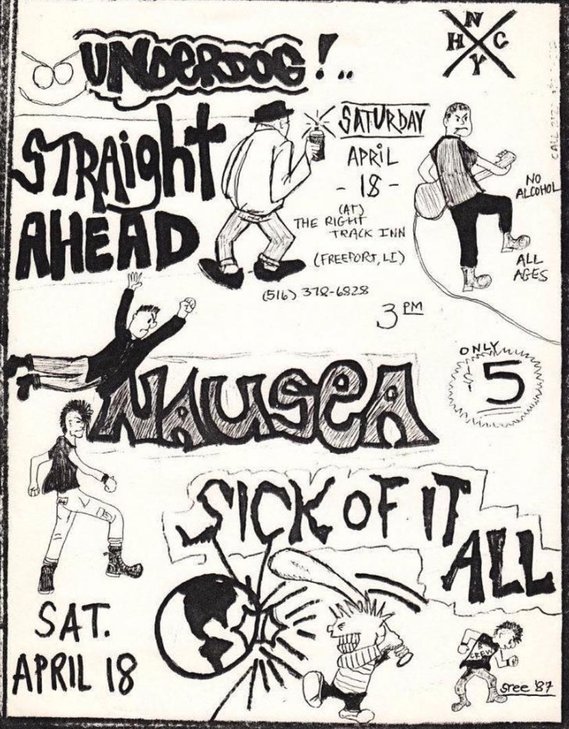 UNDERDOG!..
N
H C
Y
STRAIGHT
AHEAD
SATURDAY
APRIL
- 18 -
(AT)
THE RIGHT
TRACK INN
(FREEPORT, LI)
(516) 378-6828
3 PM
NO
ALCOHOL
ALL
AGES
ONLY
$5
NAUSEA
SICK OF IT
ALL
SAT.
APRIL 18
sree '87